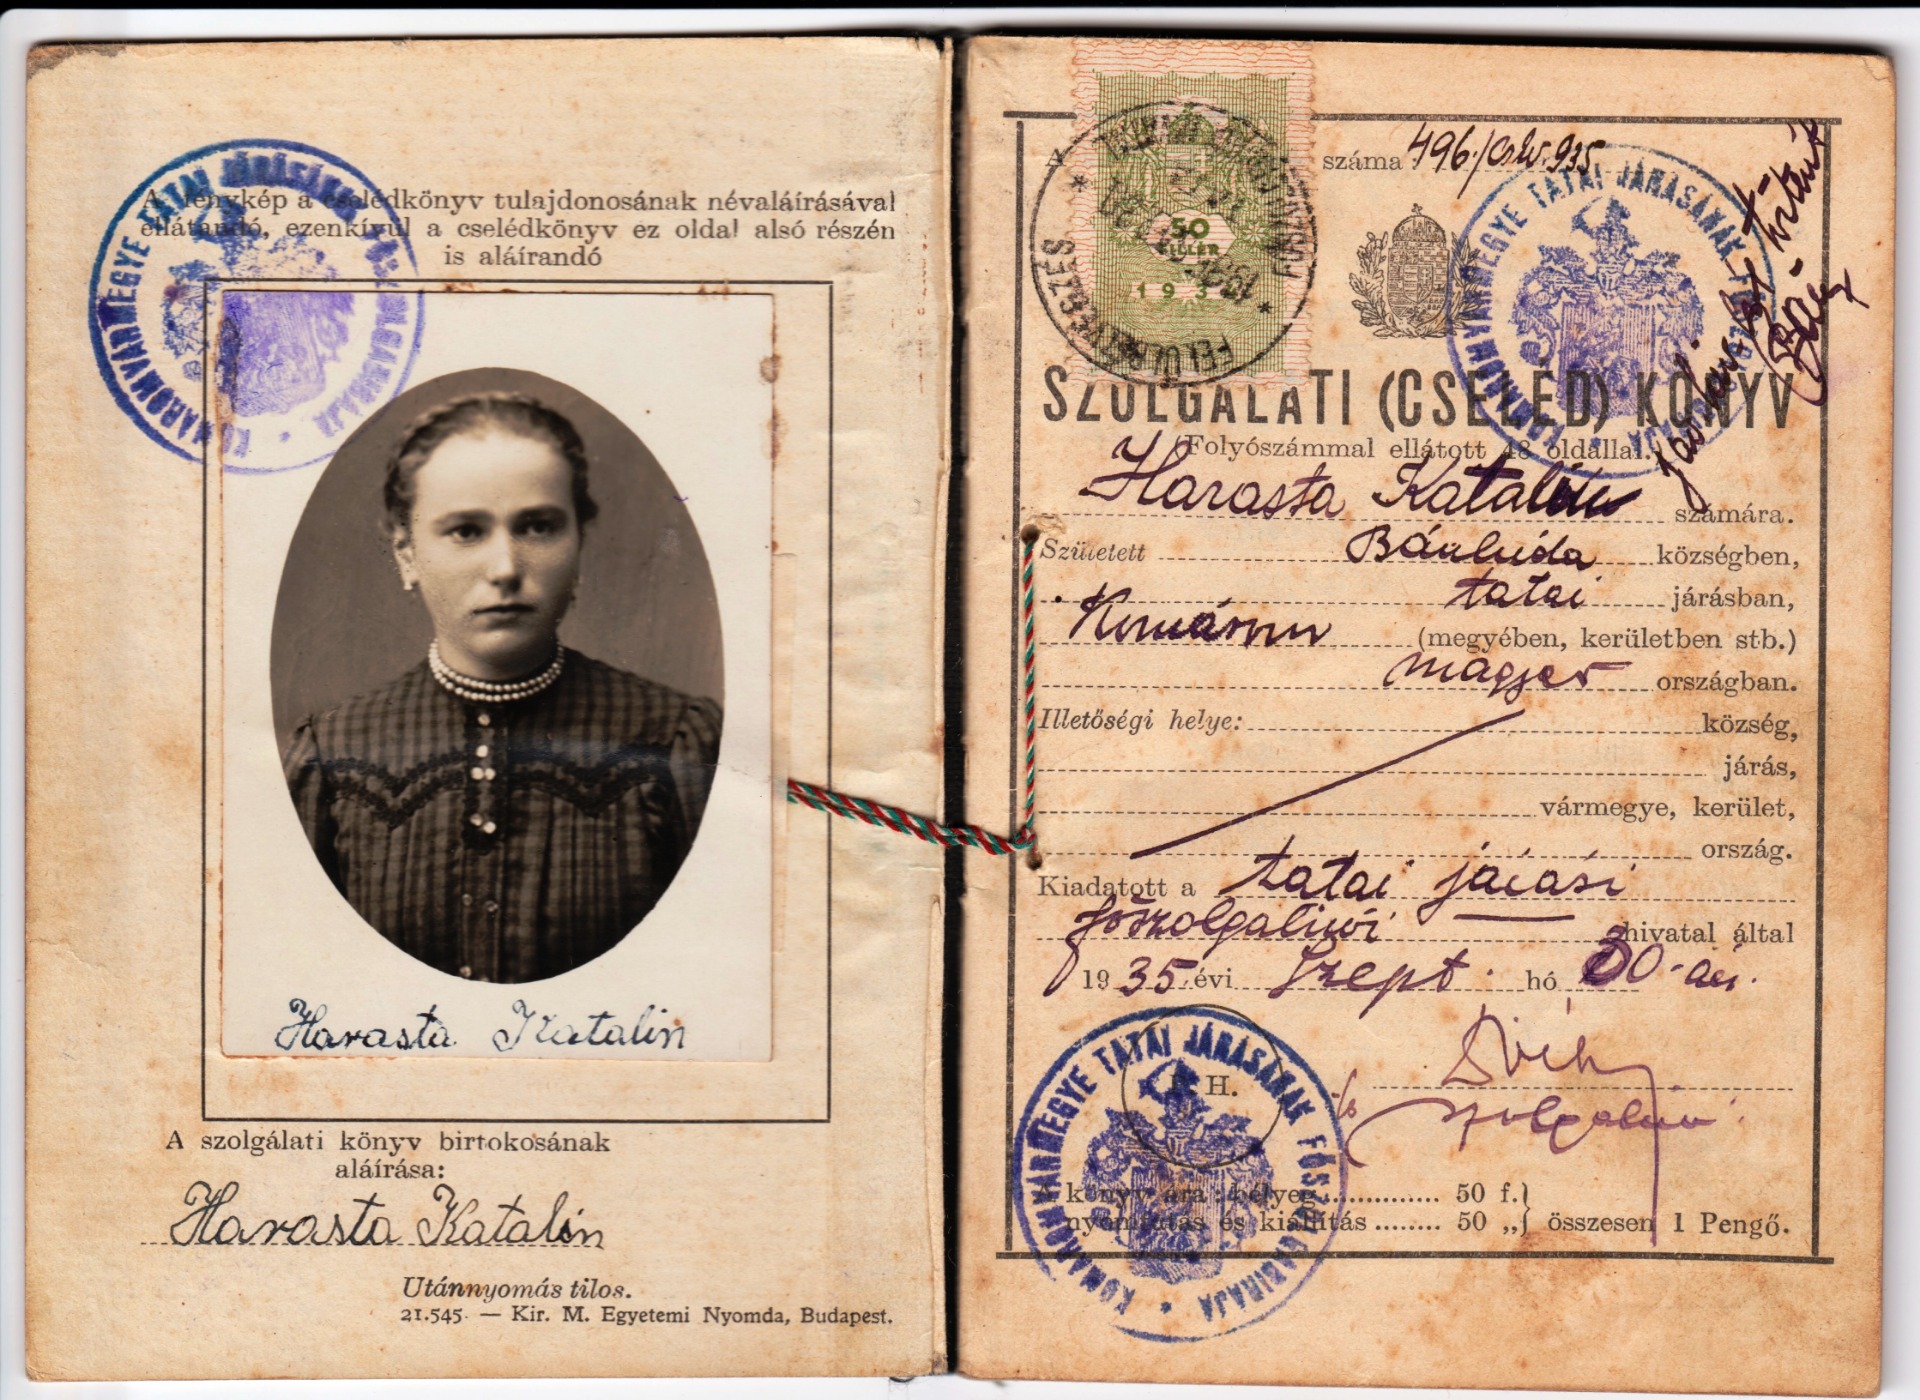 A fénykép a cselédkönyv tulajdonosának névaláírásával
ellátandó, ezenkívül a cselédkönyv ez oldal alsó részén
is aláírandó
KOMÁROMVÁRMEGYE TATAI JÁRÁSÁNAK FŐSZOLGABIRÁJA
Harasta Katalin
A szolgálati könyv birtokosának
aláírása:
Harasta Katalin
Utánnyomás tilos.
21.545 — Kir. M. Egyetemi Nyomda, Budapest.
száma 496./Cslv. 935
50
FILLÉR
FELÜLBÉLYEGZÉS
KOMÁROMVÁRMEGYE TATAI JÁRÁSÁNAK FŐSZOLGABIRÁJA
SZOLGÁLATI (CSELÉD) KÖNYV
(Folyószámmal ellátott 48 oldallal.)
Harasta Katalin számára.
Született Bánhida községben,
tatai járásban,
Komárom (megyében, kerületben stb.)
magyar országban.
Illetőségi helye: község,
járás,
vármegye, kerület,
ország.
Kiadatott a tatai járási
főszolgabirói hivatal által
1935. évi Szept. hó 30-án.
P. H.
szolgabiró
KOMÁROMVÁRMEGYE TATAI JÁRÁSÁNAK FŐSZOLGABIRÁJA
A könyv ára: bélyeg 50 f.
nyomtatás és kiállítás 50 „ összesen 1 Pengő.